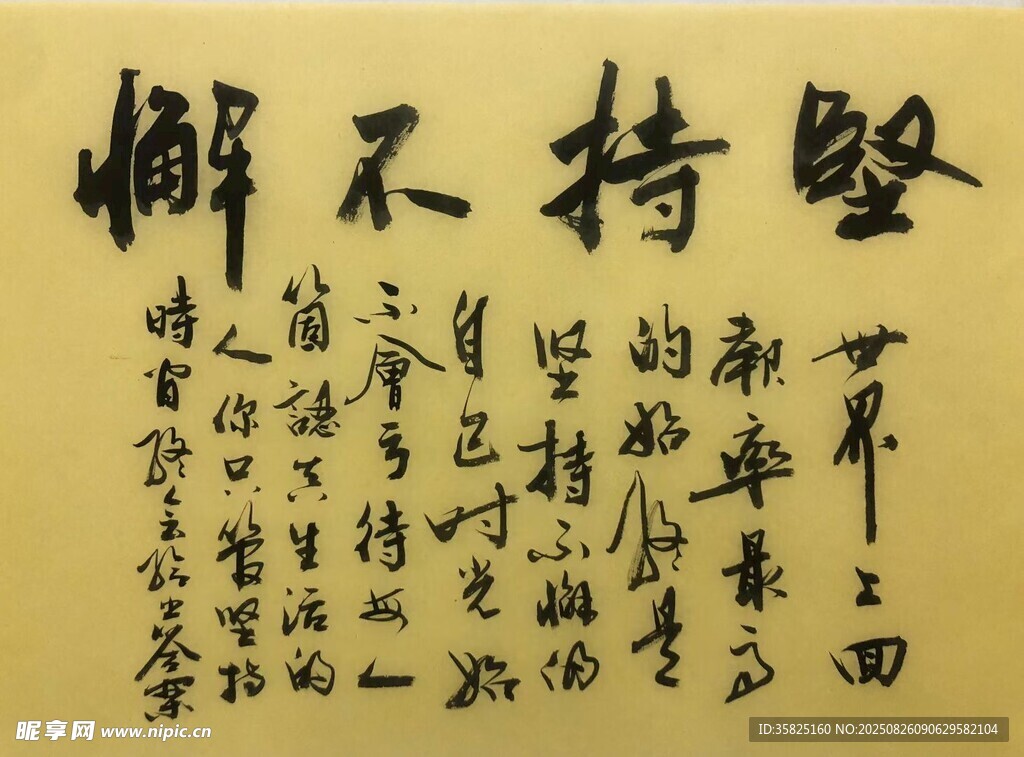 堅持不懈
世界上回
報率最高
的始終是
坚持不懈的
自己时光始
不會亏待每人
箇認真生活的
人你只管堅持
時间終会给出答案
昵享网 www.nipic.cn
ID:35825160 NO:20250826090629582104